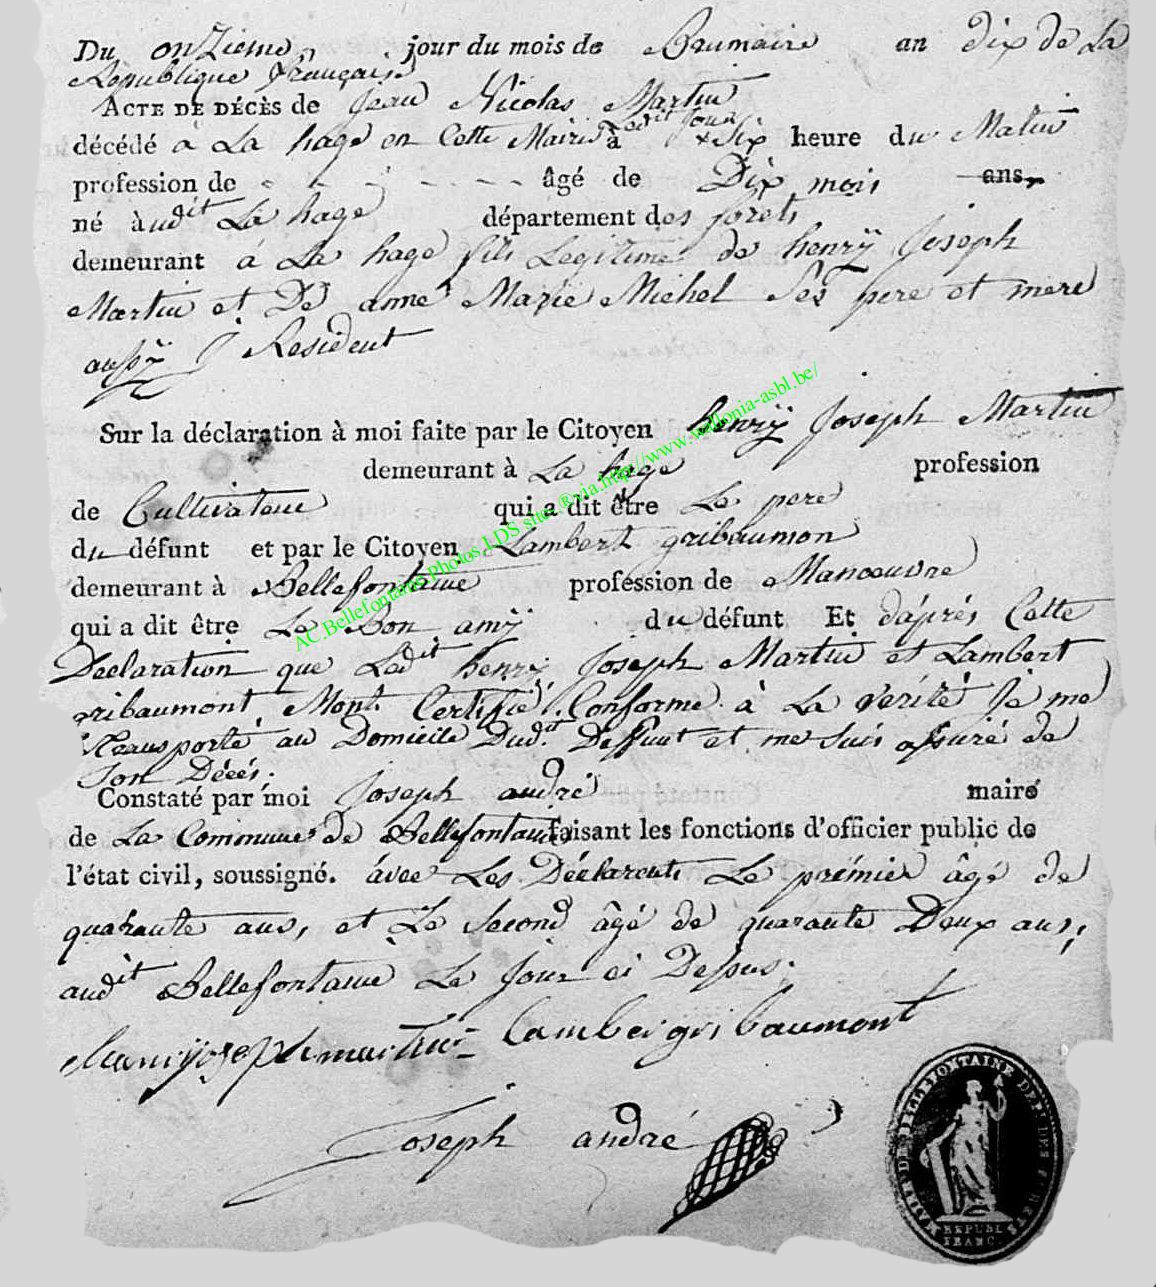 Du onzieme jour du mois de Brumaire an dix de La
Republique française
ACTE DE DÉCÈS de Jean Nicolas Martin
décédé à La hage en Cette Mairie à Ledit Jour Six heure du Matin
profession de - - - - - - âgé de Dix mois ans
né audit La hage département des forets
demeurant à La hage fils Legitime de henrÿ Joseph
Martin et De anne Marie Michel Ses pere et mere
aussÿ J Resident
Sur la déclaration à moi faite par le Citoyen henrÿ Joseph Martin
demeurant à La hage profession
de Cultivateur qui a dit être Le pere
du défunt et par le Citoyen Lambert gribaumon
demeurant à Bellefontaine profession de Manoeuvre
qui a dit être Le Bon amÿ du défunt Et d'áprés Cette
Déclaration que Ledit henrÿ Joseph Martin et Lambert
gribaumont Mont Certifié Conforme à La verité Je me
transporté au Domicile Dudit Deffunt et me suis assuré de
Son Décés.
Constaté par moi Joseph andré maire
de La Commune de Bellefontaine faisant les fonctions d'officier public de
l'état civil, soussigné. ávec Les Déclarents Le premier âgé de
quarante ans, et Le Second âgé de quarante Deux ans,
audit Bellefontaine Le Jour ci Dessus.
Henrÿ joseph martin Lamber gribaumont
Joseph andré
BELLEFONTAINE DEP. DES FORETS
REPUBL.
FRANC.
AC.Bellefontaine Photos LDS sites ®via http://www.wallonia-asbl.be/